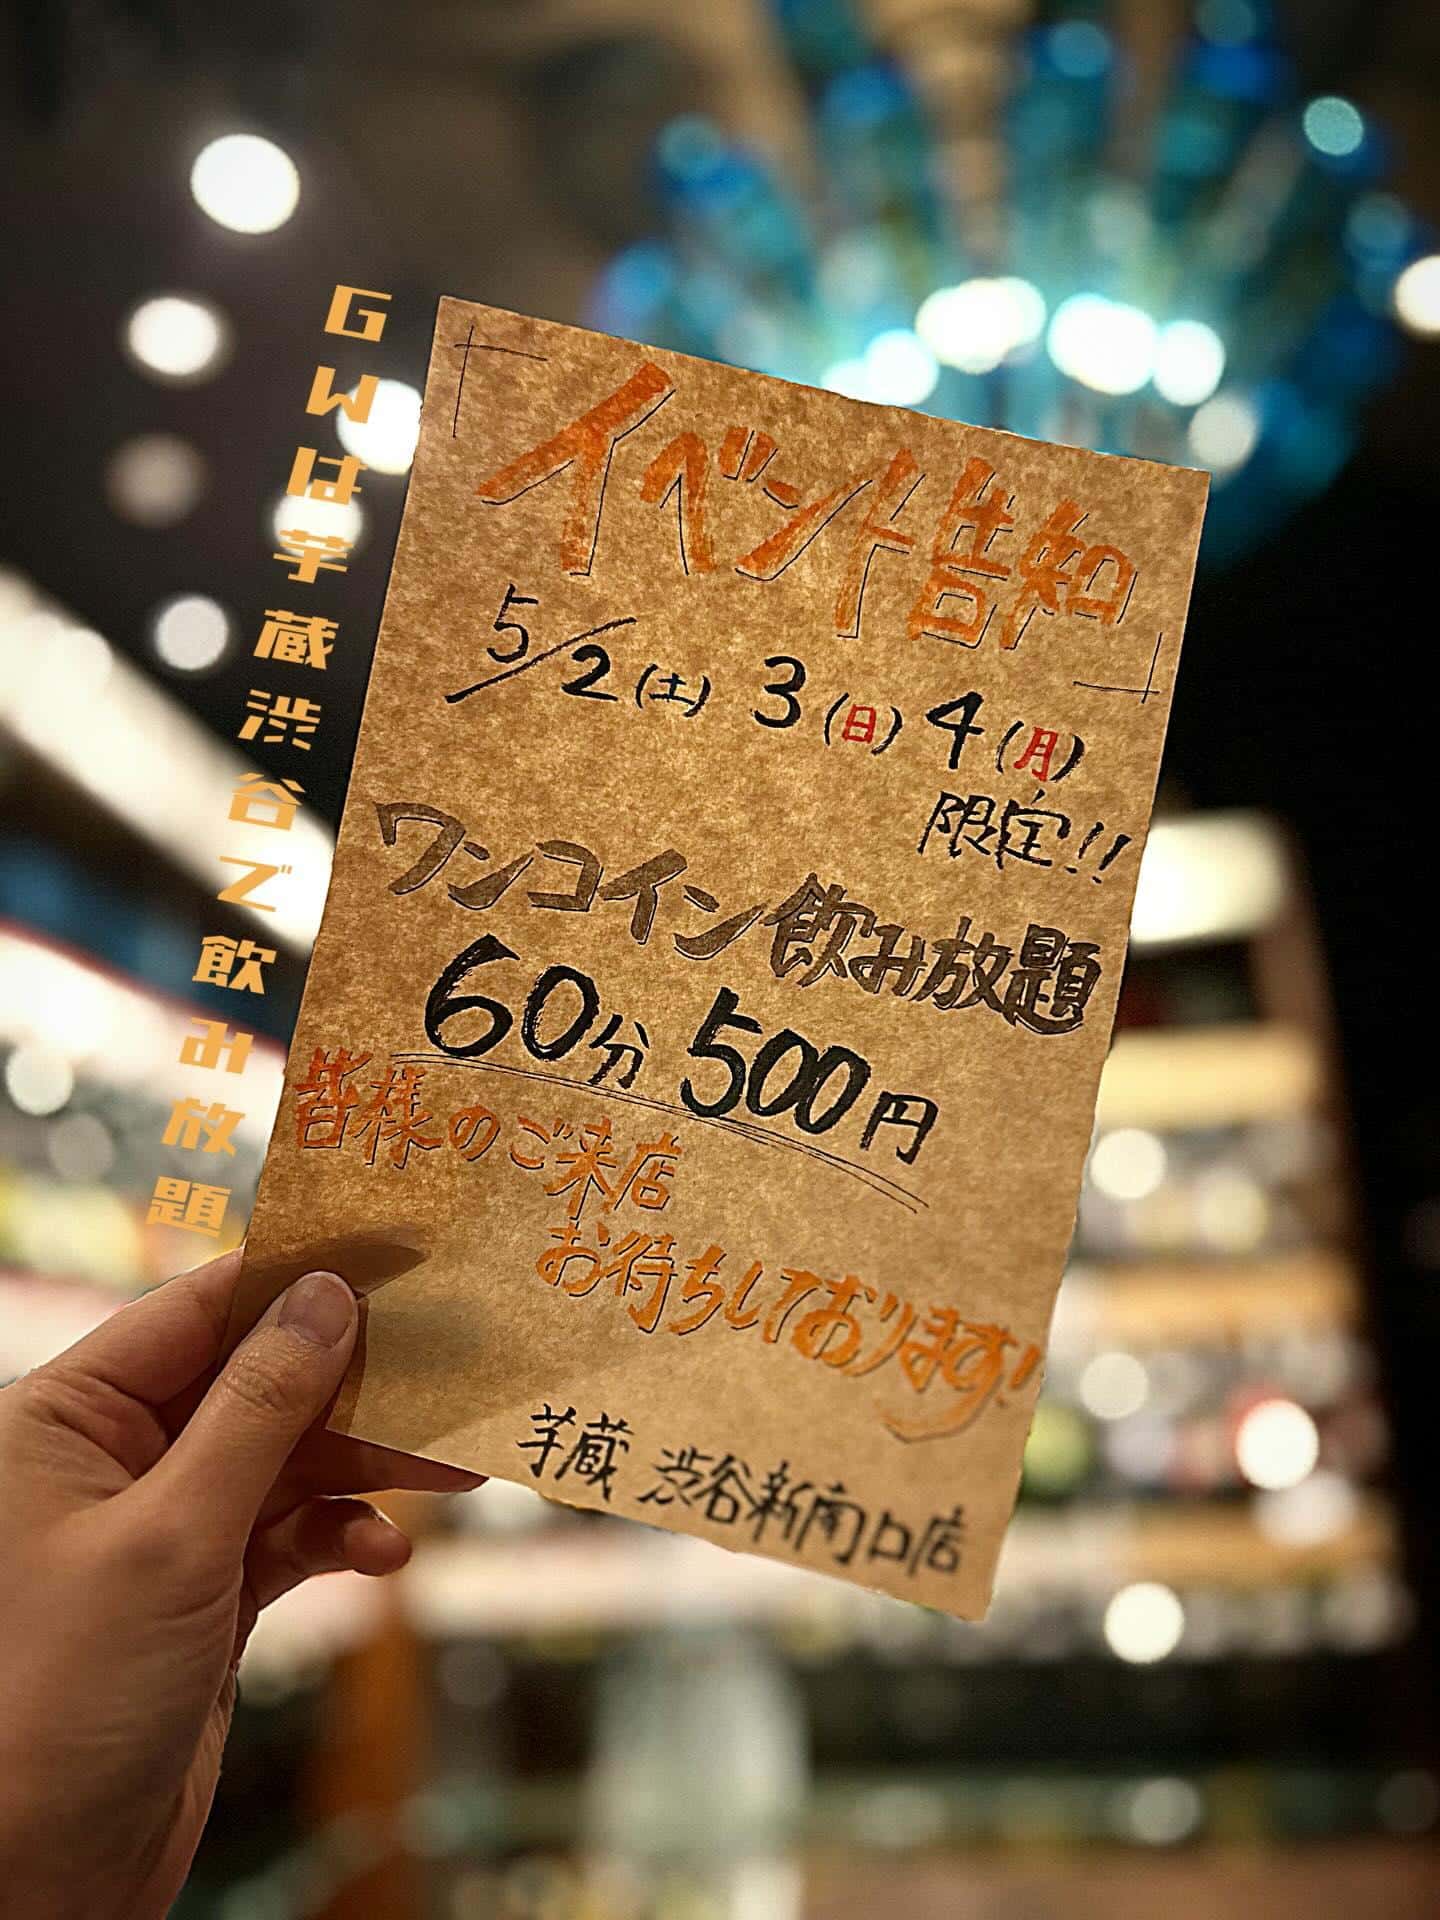 GWは芋蔵渋谷で飲み放題
「イベント告知」
5/2(土) 3(日) 4(月)
限定!!
ワンコイン飲み放題
60分 500円
皆様のご来店
お待ちしております!
芋蔵 渋谷新南口店